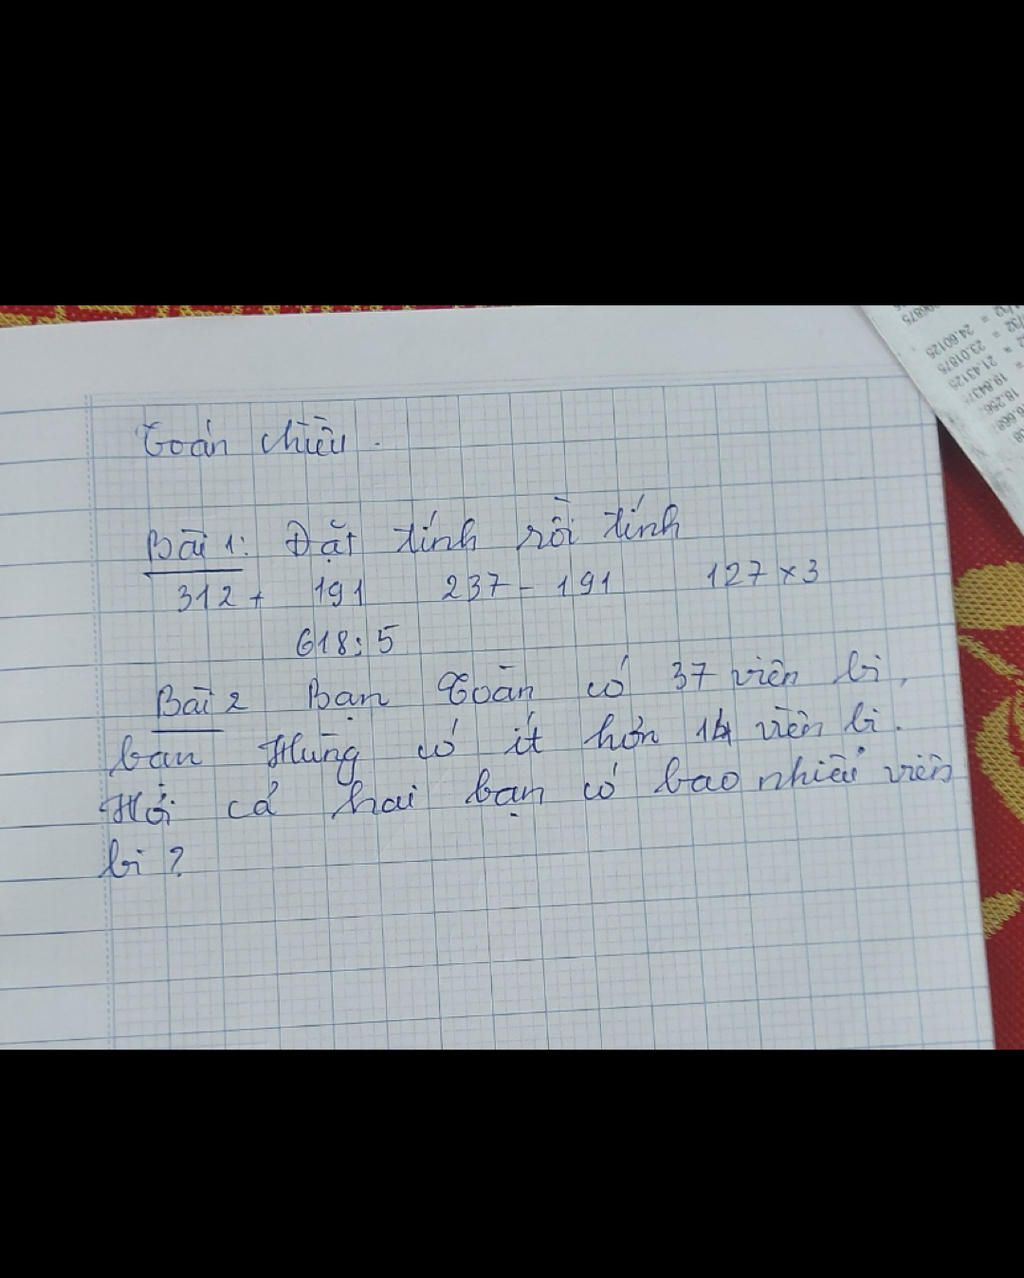 Toán chiều.
Bài 1: Đặt tính rồi tính
312 + 191 237 - 191 127 x 3
618 : 5
Bài 2 Bạn Toàn có 37 viên bi,
bạn Hùng có ít hơn 14 viên bi.
Hỏi cả hai bạn có bao nhiêu viên
bi ?
24.60125
23.01875
21.43125